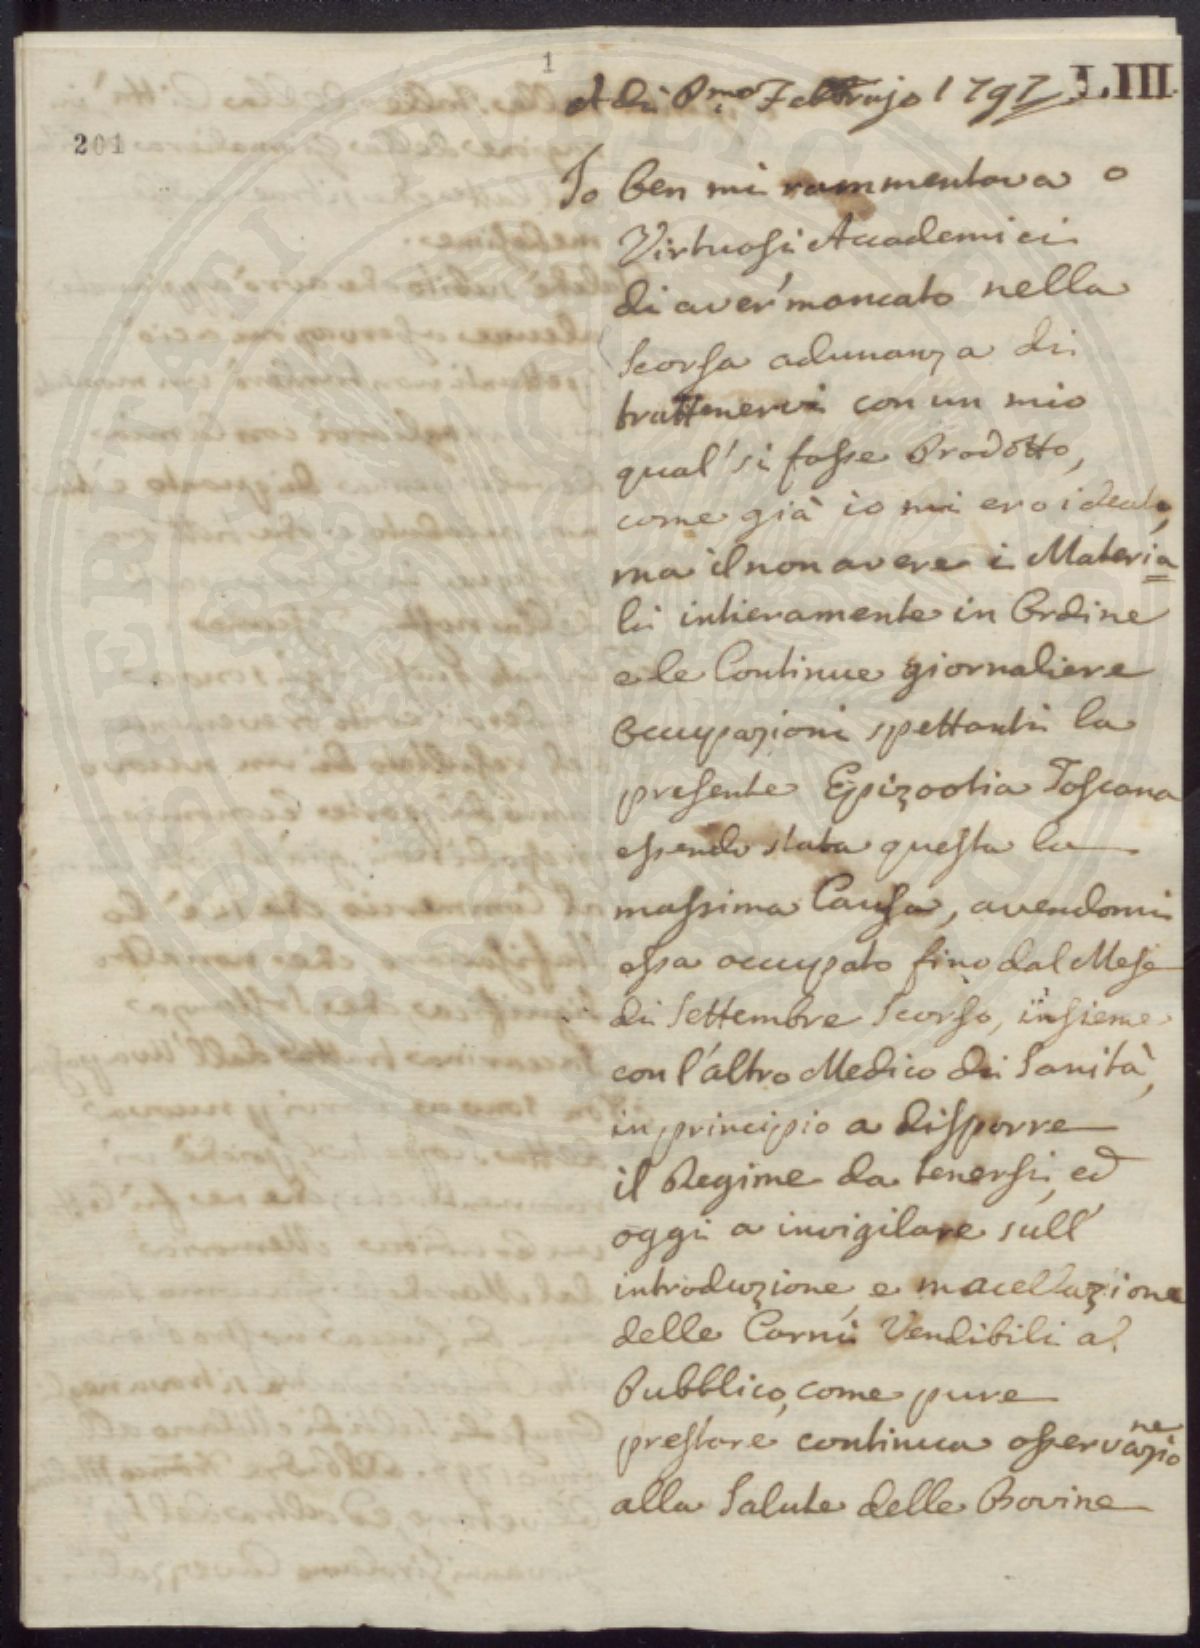 1
A di P.mo Febbrajo 1797 LIII.
201
Io ben mi rammentava o
Virtuosi Accademici
di aver' mancato nella
scorsa adunanza di
trattenervi con un mio
qual' si fosse Prodotto,
come già io mi ero ideato,
ma il non avere i Materia
li intieramente in Ordine
e le Continue giornaliere
Occupazioni spettanti la
presente Epizootia Toscana
essendo stata questa la
massima Causa, avendomi
essa occupato fino dal Mese
di Settembre Scorso, insieme
con l'altro Medico di Sanità,
in principio a disporre
il Regime da tenersi, ed
oggi a invigilare sull'
introduzione, e macellazione
delle Carni Vendibili al
Pubblico, come pure
prestare continua osservazio
ne
alla Salute delle Bovine